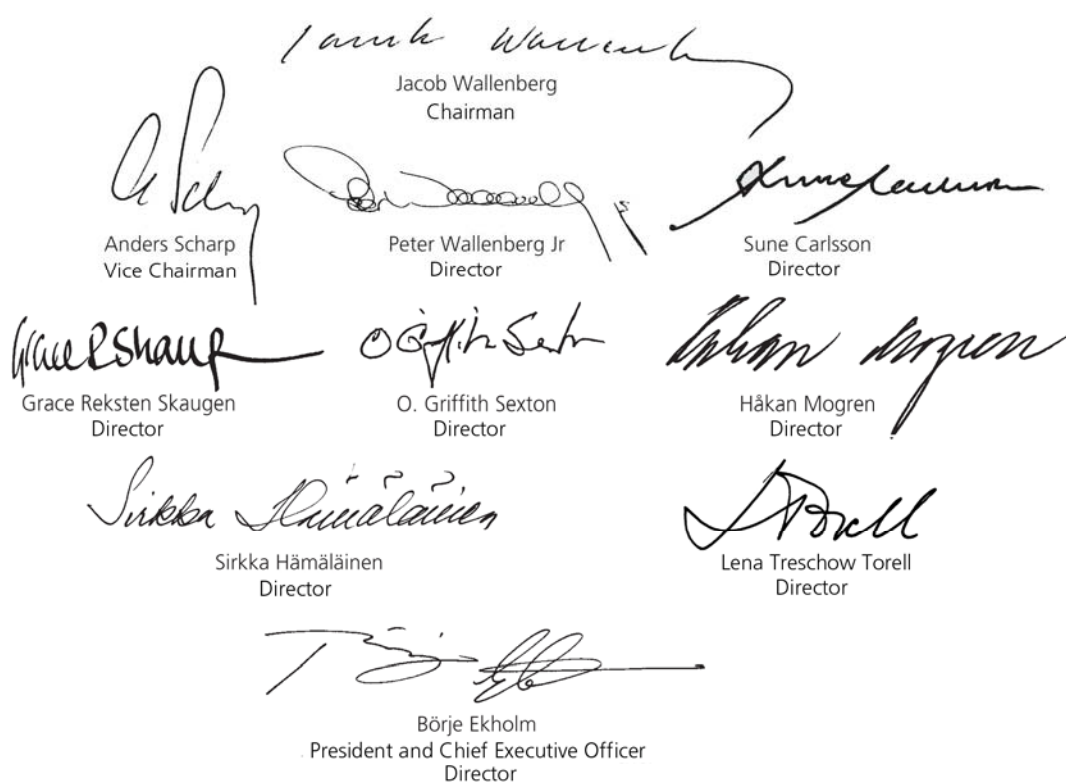 Jacob Wallenberg
Chairman
Anders Scharp
Vice Chairman
Peter Wallenberg Jr
Director
Sune Carlsson
Director
Grace Reksten Skaugen
Director
O Griffith Sexton
O. Griffith Sexton
Director
Håkan Mogren
Håkan Mogren
Director
Sirkka Hämäläinen
Sirkka Hämäläinen
Director
Lena Treschow Torell
Director
Börje Ekholm
President and Chief Executive Officer
Director